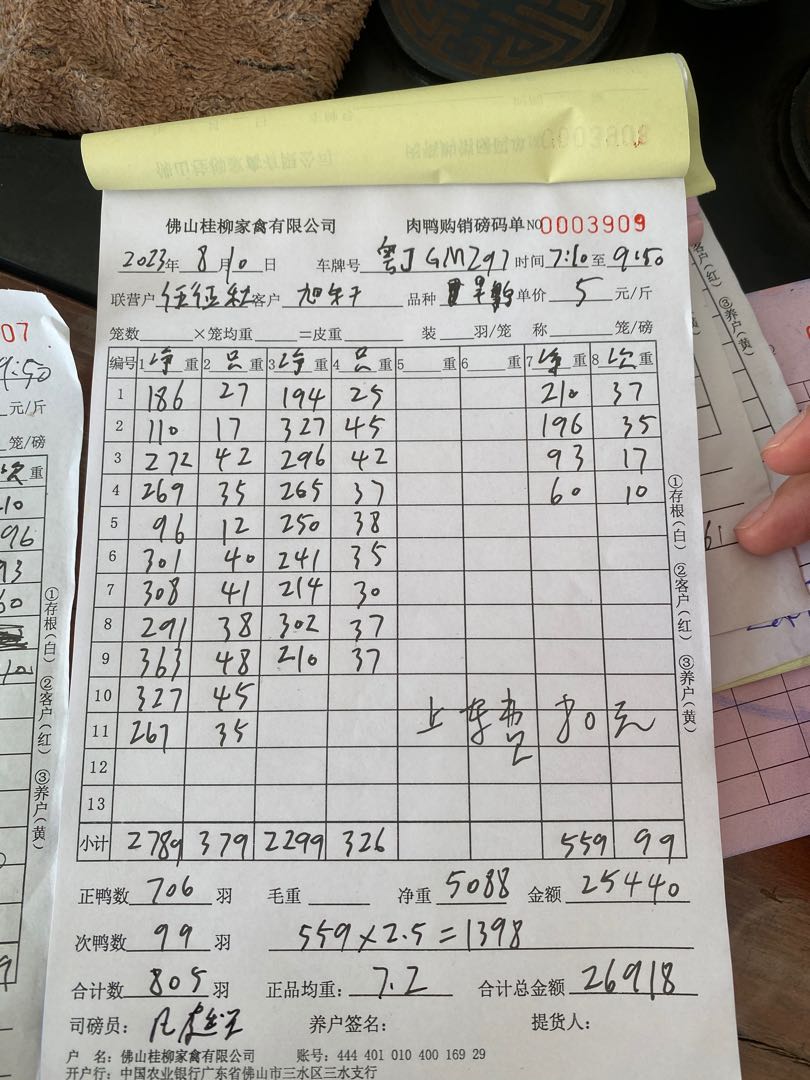 0003908
佛山桂柳家禽有限公司 肉鸭购销磅码单 NO 0003909
2023年 8月10日 车牌号 粤J GM297 时间 7:10 至 9:50
联营户 客户 旭轩 品种 单价 5 元/斤
笼数 ×笼均重 =皮重 装 羽/笼 称 笼/磅
编号 1 净重 2 只重 3 净重 4 只重 5 重 6 重 7 净重 8 次重
1 186 27 194 25 210 37
2 110 17 327 45 196 35
3 272 42 296 42 93 17
4 269 35 265 37 60 10
5 96 12 250 38
6 301 40 241 35
7 308 41 214 30
8 291 38 302 37
9 363 48 210 37
10 327 45
11 267 35
上车费 80元
12
13
小计 2789 379 2299 326 559 99
①存根(白) ②客户(红) ③养户(黄)
正鸭数 706 羽 毛重 净重 5088 金额 25440
次鸭数 99 羽 559×2.5=1398
合计数 805 羽 正品均重: 7.2 合计总金额 26918
司磅员: 养户签名: 提货人:
户 名: 佛山桂柳家禽有限公司 账号: 444 401 010 400 169 29
开户行: 中国农业银行广东省佛山市三水区三水支行
07
9:50
元/斤
笼/磅
次重
10
96
93
60
10
①存根(白) ②客户(红) ③养户(黄)
②客户(红) ③养户(黄)